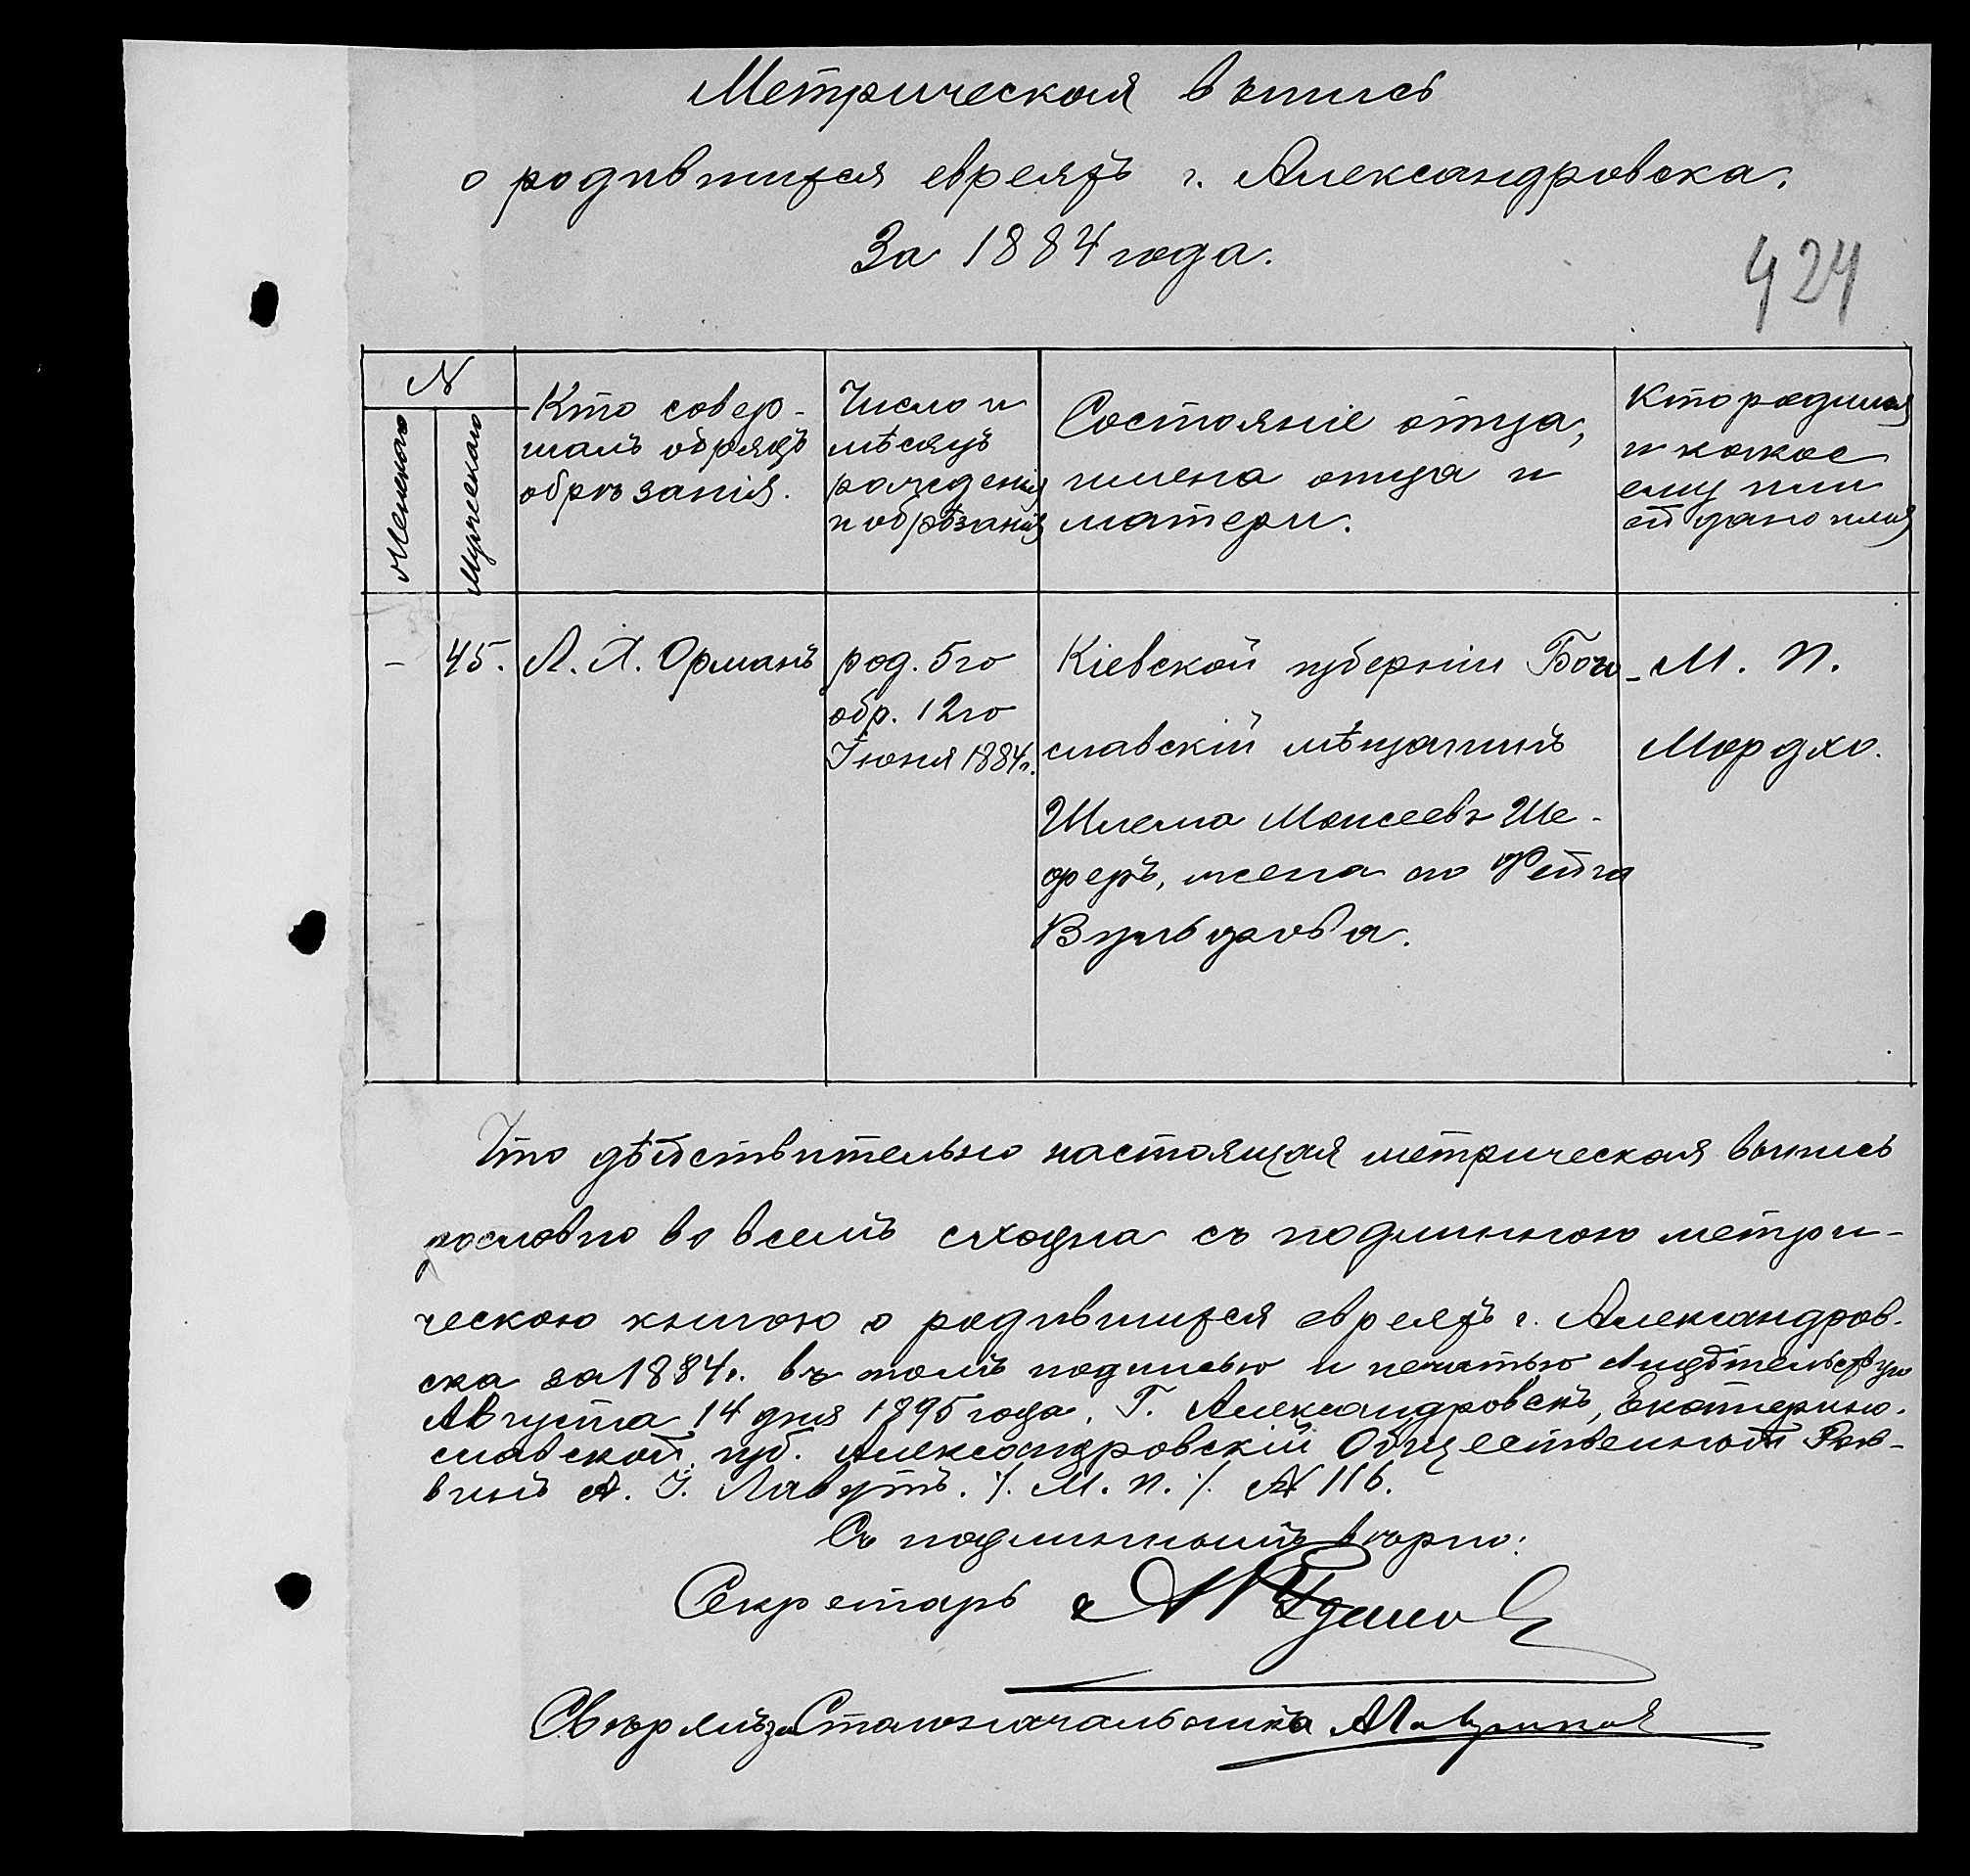 Метрическая выпись
о родившихся евреяхъ г. Александровска.
За 1884 года.
424
N
Женского
Мужеского
Кто совер-
шалъ обрядъ
обрѣзанія.
Число и
мѣсяцъ
рожденія
и обрѣзанія
Состояніе отца,
имена отца и
матери.
Кто родился
и какое
ему или
ей дано имя
-
45.
Л. Х. Орманъ
род. 5го
обр. 12го
Іюня 1884г.
Кіевской губерніи Богу-
славскій мѣщанинъ
Шлема Моисеевъ Ше-
феръ, жена его Фейга
Вульфова.
М. п.
Мордхо.
Что дѣйствительно настоящая метрическая выпись
дословно во всемъ сходна съ подлинною метри-
ческою книгою о родившихся евреяхъ г. Александров-
ска за 1884г. въ томъ подписью и печатью свидѣтельствую
Августа 14 дня 1895 года. Г. Александровскъ, Екатерино-
славской губ. Александровскій Общественный Рав-
винъ А. І. Лавутъ. /. М. п. /. N 116.
Съ подлиннымъ вѣрно:
Секретарь
Свѣрялъ: за Столоначальника